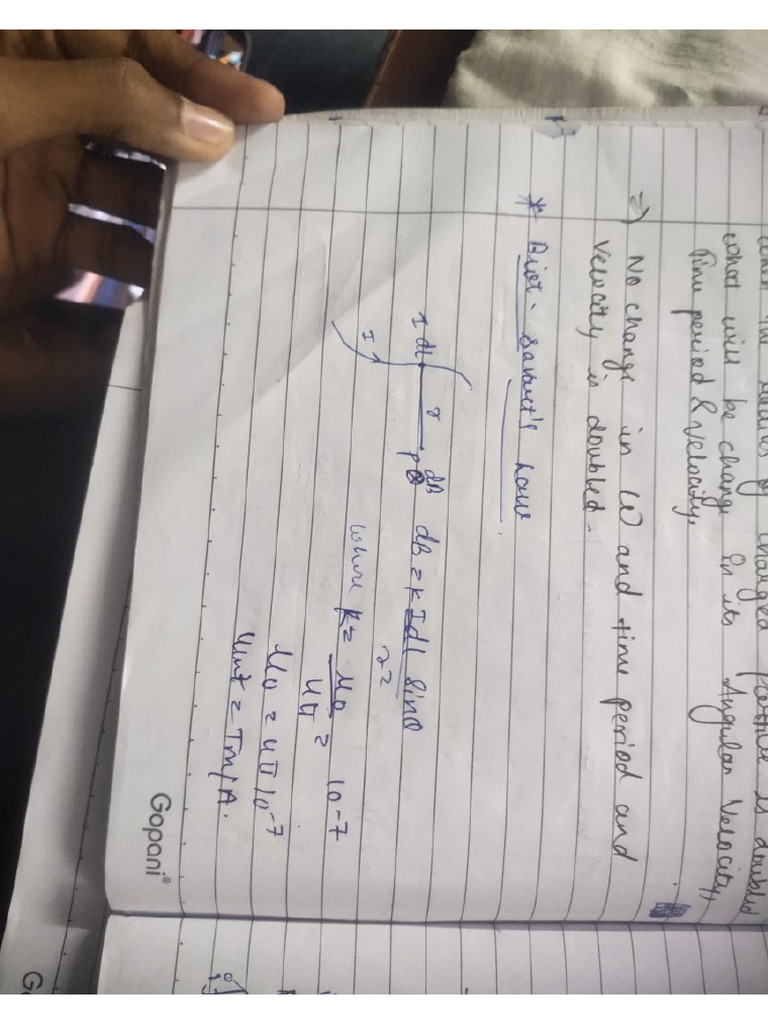 what will be change in its Angular Velocity,
Time period & velocity,
=> No change in ω and time period and
velocity is doubled.
* Biot-Savart's Law
I dl r dB
I P
dB = k Idl sinθ
r²
where k = μ0 = 10-7
4π
μ0 = 4π 10-7
Unit = Tm/A.
Gopani®